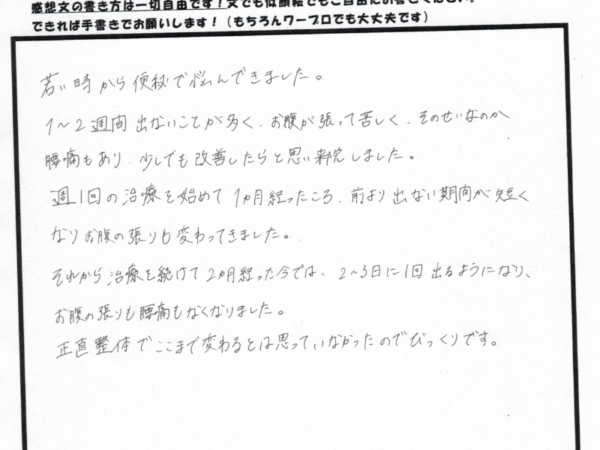 感想文の書き方は一切自由です！文でも似顔絵でもご自由にお書きください。
できれば手書きでお願いします！（もちろんワープロでも大丈夫です）
若い時から便秘で悩んできました。
1～2週間出ないことが多く、お腹が張って苦しく、そのせいなのか
腰痛もあり、少しでも改善したらと思い来院しました。
週1回の治療を始めて1ヵ月経ったころ、前より出ない期間が短く
なりお腹の張りも変わってきました。
それから治療を続けて2ヵ月経った今では、2～3日に1回出るようになり、
お腹の張りも腰痛もなくなりました。
正直整体でここまで変わるとは思っていなかったのでびっくりです。